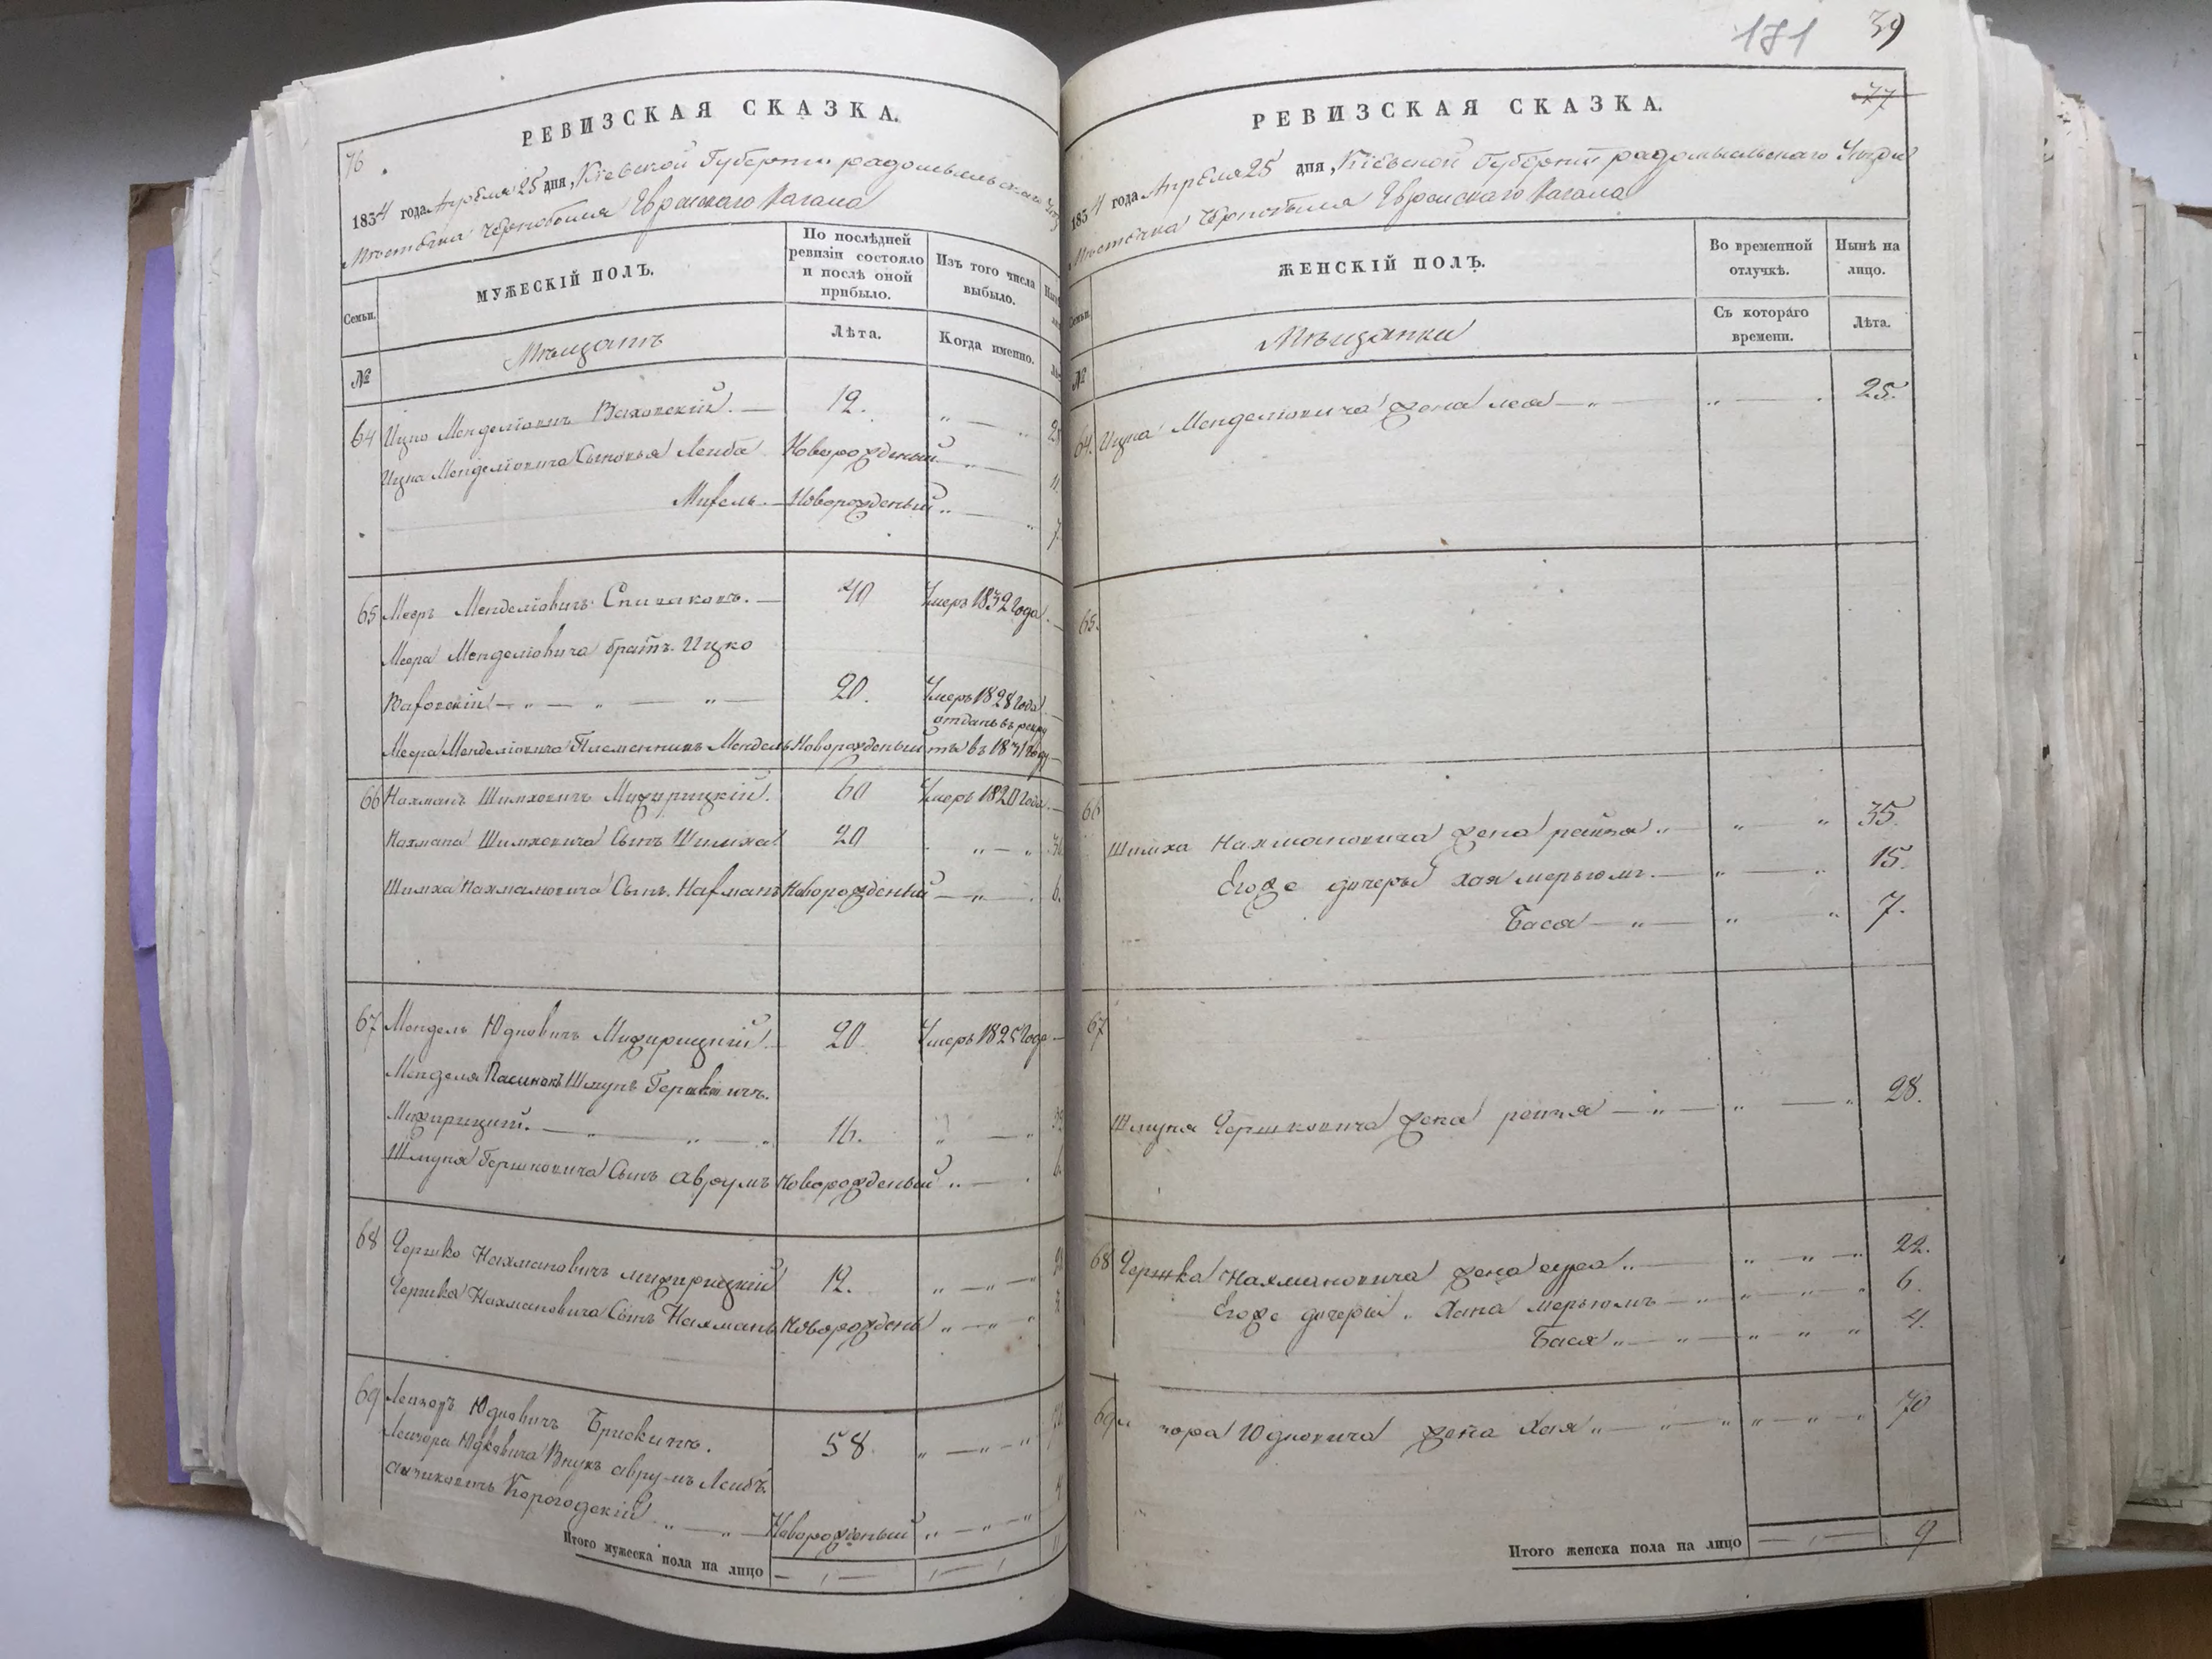 76
РЕВИЗСКАЯ СКАЗКА.
1834 года Апреля 25 дня, Кіевской Губерніи радомысльскаго
Мѣстечка Чернобыля Еврейскаго Кагала
Семьи.
МУЖЕСКІЙ ПОЛЪ.
По послѣдней ревизіи состояло и послѣ оной прибыло.
Изъ того числа выбыло.
№
Мѣщанъ
Лѣта.
Когда именно.
64 Ицко Менделіовичъ 12.
Ицка Менделіовича Сыновья Лейба Новорожденый
Михель Новорожденый 7
65 Мееръ Менделіовичъ Спиваковъ. 40 Умеръ 1832 года
Меера Менделіовича братъ Ицко
20. Умеръ 1828 года
отданъ въ рекру
Меера Менделіовича Племенникъ Мендель Новорожденый ты въ 1831 году
66 Нахманъ Шимховичъ Мижирицкій. 60 Умеръ 1820 года
Нахмана Шимховича Сынъ Шимха 20
Шимха Нахмановича Сынъ Нахманъ Новорожденый 6.
67 Мендель Юдковичъ Мижирицкій 20 Умеръ 1825 года
Менделя Пасинокъ Шмуль
Мижирицкий. 16.
Шмуля Гершковича Сынъ Аврумъ Новорожденый 6
68 Гершко Нахмановичъ мижирицкій 12.
Гершка Нахмановича Сынъ Нахманъ Новорождень
69 Лейзоръ Юдковичъ 58
Лейзора Юдковича Внукъ аврумъ Лейбъ
Корогодскій Новорожденый
Итого мужеска пола на лицо
181 39
77
РЕВИЗСКАЯ СКАЗКА.
1834 года Апреля 25 дня, Кіевской Губерніи радомысльскаго Уезда
Мѣстечка Чернобыля Еврейскаго Кагала
Семьи.
ЖЕНСКІЙ ПОЛЪ.
Во временной отлучкѣ.
Нынѣ на лицо.
№
Мѣщанки
Съ котораго времени.
Лѣта.
64. Ицка Менделіовича жена лея 25.
65.
66
Шимха Нахмановича жена райза 35.
Егоже дочеры хая мерьюмъ. 15.
Бася 7.
67
Шмуля Гершковича жена 28.
68 Гершка Нахмановича жена сура 22.
Егоже дочери Хана мерьюмъ 6.
Бася 4.
69 зора Юдковича жена Хая 70
Итого женска пола на лицо 9